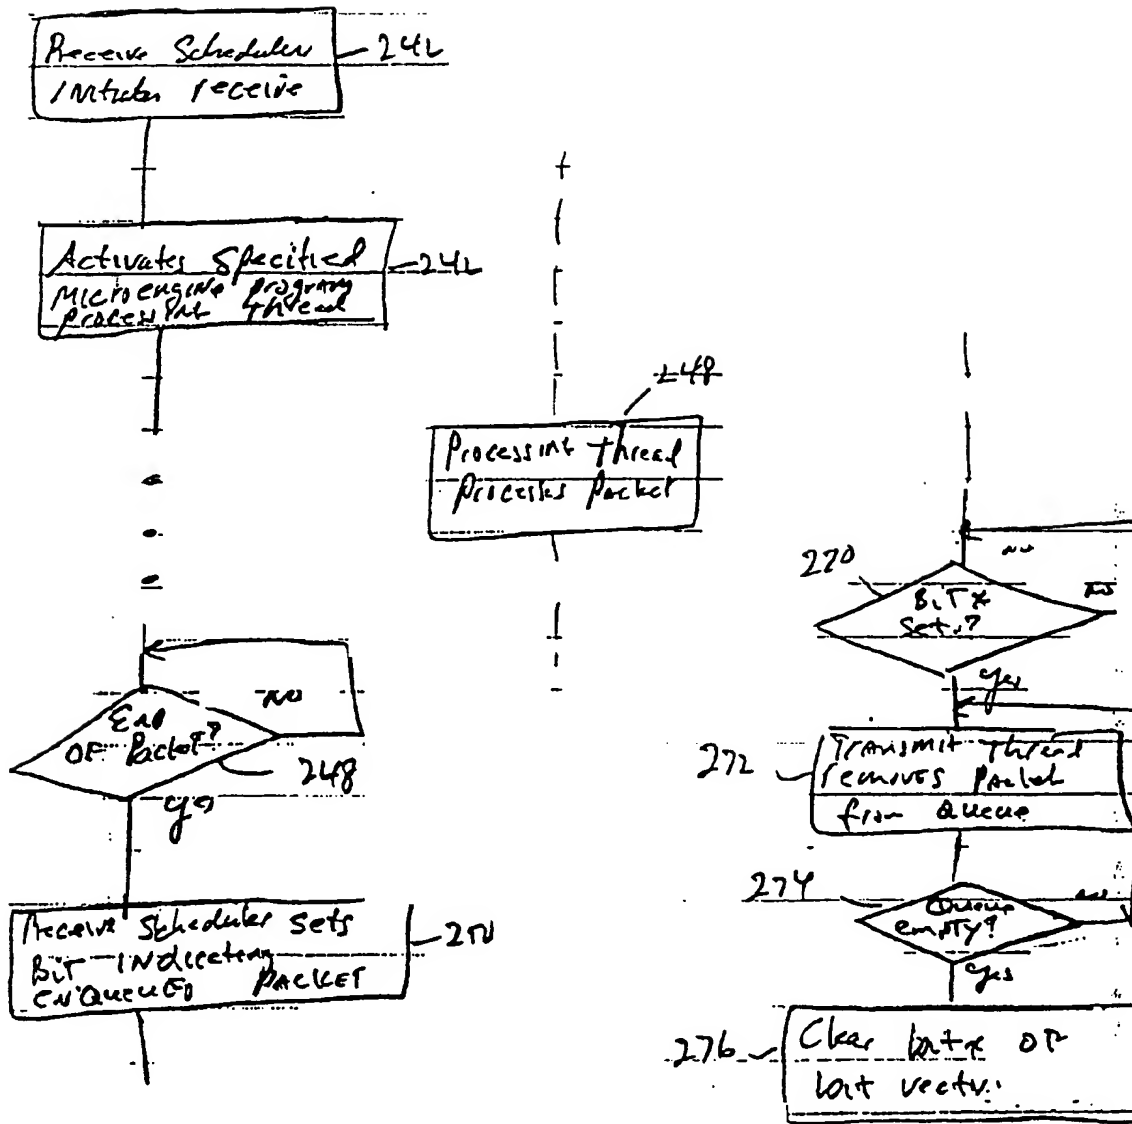 Receive Scheduler
Initiates receive
242
Activates Specified
Microengine program
processing thread
242
248
Processing thread
Processes Packet
End
OF Packet?
NO
248
yes
Receive Scheduler sets
Bit Indicating
ENQUEUED PACKET
270
BIT x
set?
no
no
yes
272
Transmit Thread
removes Packet
from Queue
274
Queue
empty?
no
yes
276
Clear bit x of
bit vector